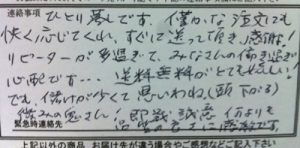 連絡事項
ひとり暮しです。僅かな注文にも
快く応じてくれ、すぐに送って頂き、感謝!
リピーターが多過ぎて、みなさんの働き過ぎ
心配です… 送料無料がとてもうれしい!
でも、儲けが少くて思いわね(頭下がる)
僅みの恵さん! 即戦、誠意 何よりも
品質の良さに感謝です。
緊急時連絡先
上記以外の商品、お届け先が違う場合やご感想などご記入下さい